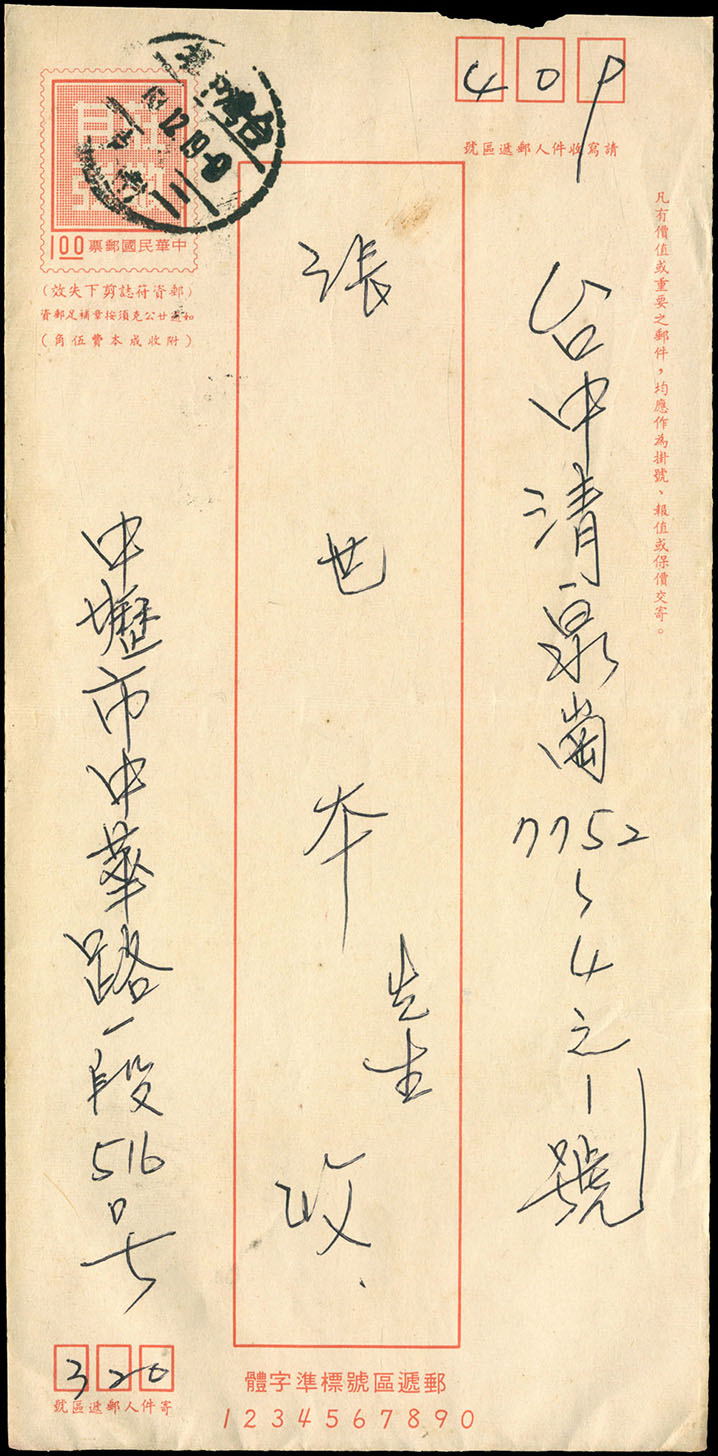 409
請寫收件人郵遞區號
凡有價值或重要之郵件，均應作為掛號、報值或保價交寄。
台中清泉崗7752
4之1號
張世本先生收
莊敬
自強
中華民國郵票 1.00
(郵資符誌剪下失效)
如逾廿公克須按章補足郵資
(附收成本費伍角)
台灣
12.19
中壢市中華路一段516号
320
寄件人郵遞區號
郵遞區號標準字體
1234567890